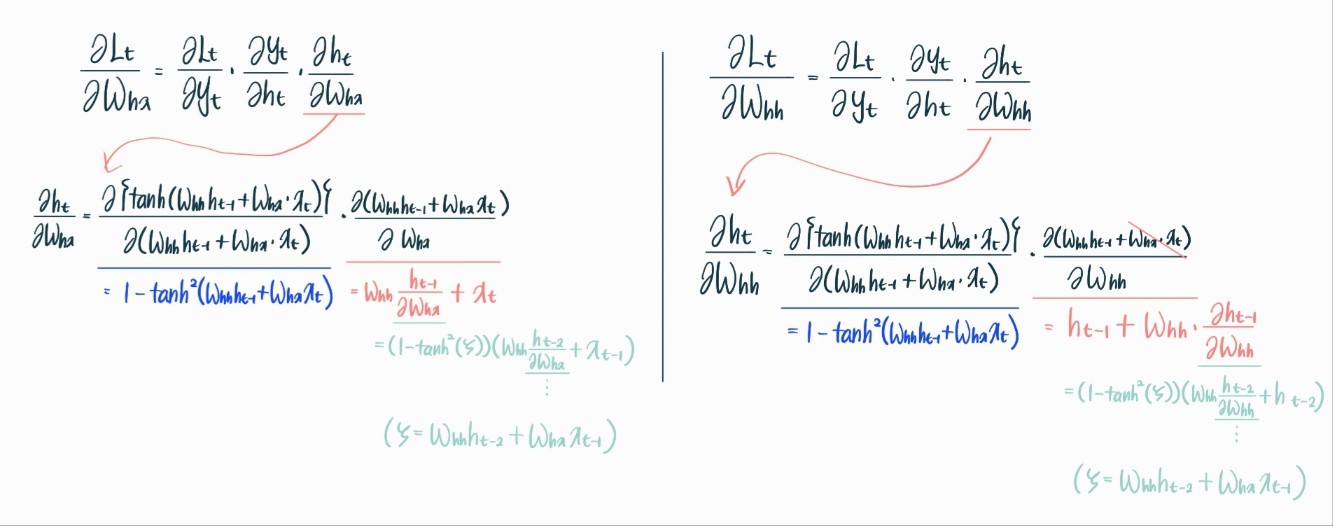 ∂Lt/∂Whx = ∂Lt/∂yt · ∂yt/∂ht · ∂ht/∂Whx
∂ht/∂Whx = ∂{tanh(Whhht-1+Whx·xt)}/∂(Whhht-1+Whx·xt) · ∂(Whhht-1+Whxxt)/∂Whx
= 1-tanh²(Whhht-1+Whxxt)
= Whh ht-1/∂Whx + xt
= (1-tanh²(ζ))(Whh ht-2/∂Whx + xt-1)
⋮
(ζ = Whhht-2 + Whxxt-1)
∂Lt/∂Whh = ∂Lt/∂yt · ∂yt/∂ht · ∂ht/∂Whh
∂ht/∂Whh = ∂{tanh(Whhht-1+Whx·xt)}/∂(Whhht-1+Whx·xt) · ∂(Whhht-1+Whx·xt)/∂Whh
= 1-tanh²(Whhht-1+Whxxt)
= ht-1 + Whh · ∂ht-1/∂Whh
= (1-tanh²(ζ))(Whh ht-2/∂Whh + ht-2)
⋮
(ζ = Whhht-2 + Whxxt-1)